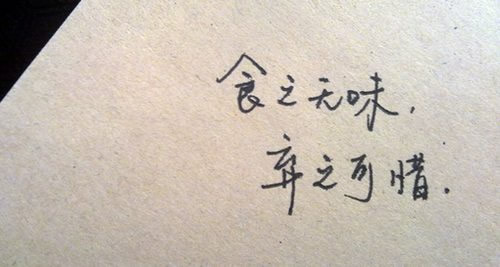 食之无味,
弃之可惜.